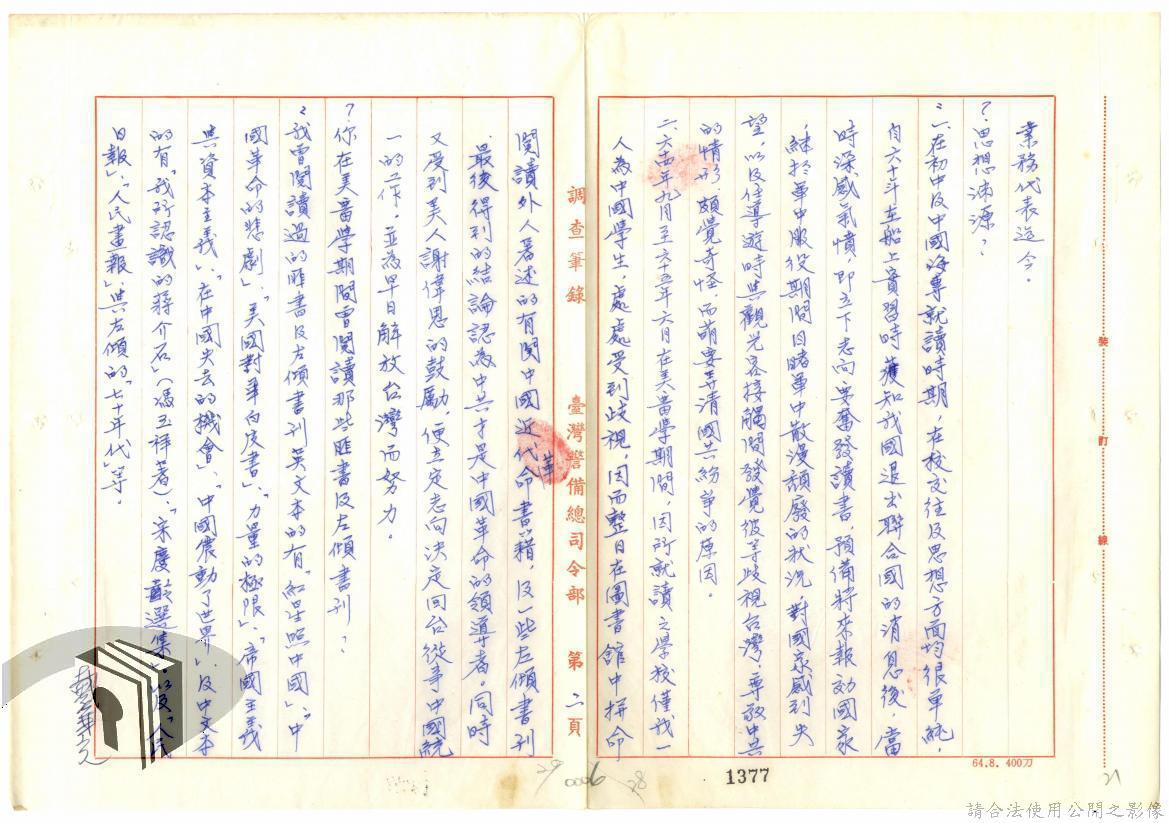 業務代表迄今。
?思想淵源?
一、在初中及中國海專就讀時期,在校交往及思想方面均很單純,
自六十年在船上實習時獲知我國退出聯合國的消息後,當
時深感氣憤即立下志向要奮發讀書預備將來報効國家
,繼於軍中服役期間目睹軍中散漫頹廢的狀況,對國家感到失
望,以及任導遊時與觀光客接觸間發覺彼等歧視台灣,尊敬中共
的情形,頗覺奇怪,而萌要弄清國共紛爭的原因。
二、六四年九月至六五年六月在美留學期間,因所就讀之學校僅我一
人為中國學生,處處受到歧視,因而整日在圖書館中拼命
調查筆錄 臺灣警備總司令部 第二頁
閱讀外人著述的有關中國近代革命書籍,及一些左傾書刊
,最後得到的結論認為中共才是中國革命的領導者。同時
又受到美人謝偉思的鼓勵,便立定志向決定回台從事中國統
一的工作,並為早日解放台灣而努力。
?你在美留學期間曾閱讀那些匪書及左傾書刊?
我曾閱讀過的匪書及左傾書刊英文本的有「紅星照中國」、「中
國革命的悲劇」、「美國對華白皮書」、「力量的極限」、「帝國主義
與資本主義」、「在中國失去的機會」、「中國震動了世界」及中文本
的有「我所認識的蔣介石」(馮玉祥著)、「宋慶齡選集」、以及「人民
日報」、「人民畫報」與左傾的「七十年代」等。
裝 訂 線
64.8. 400刀
1377
0006
29
28
21
請合法使用公開之影像